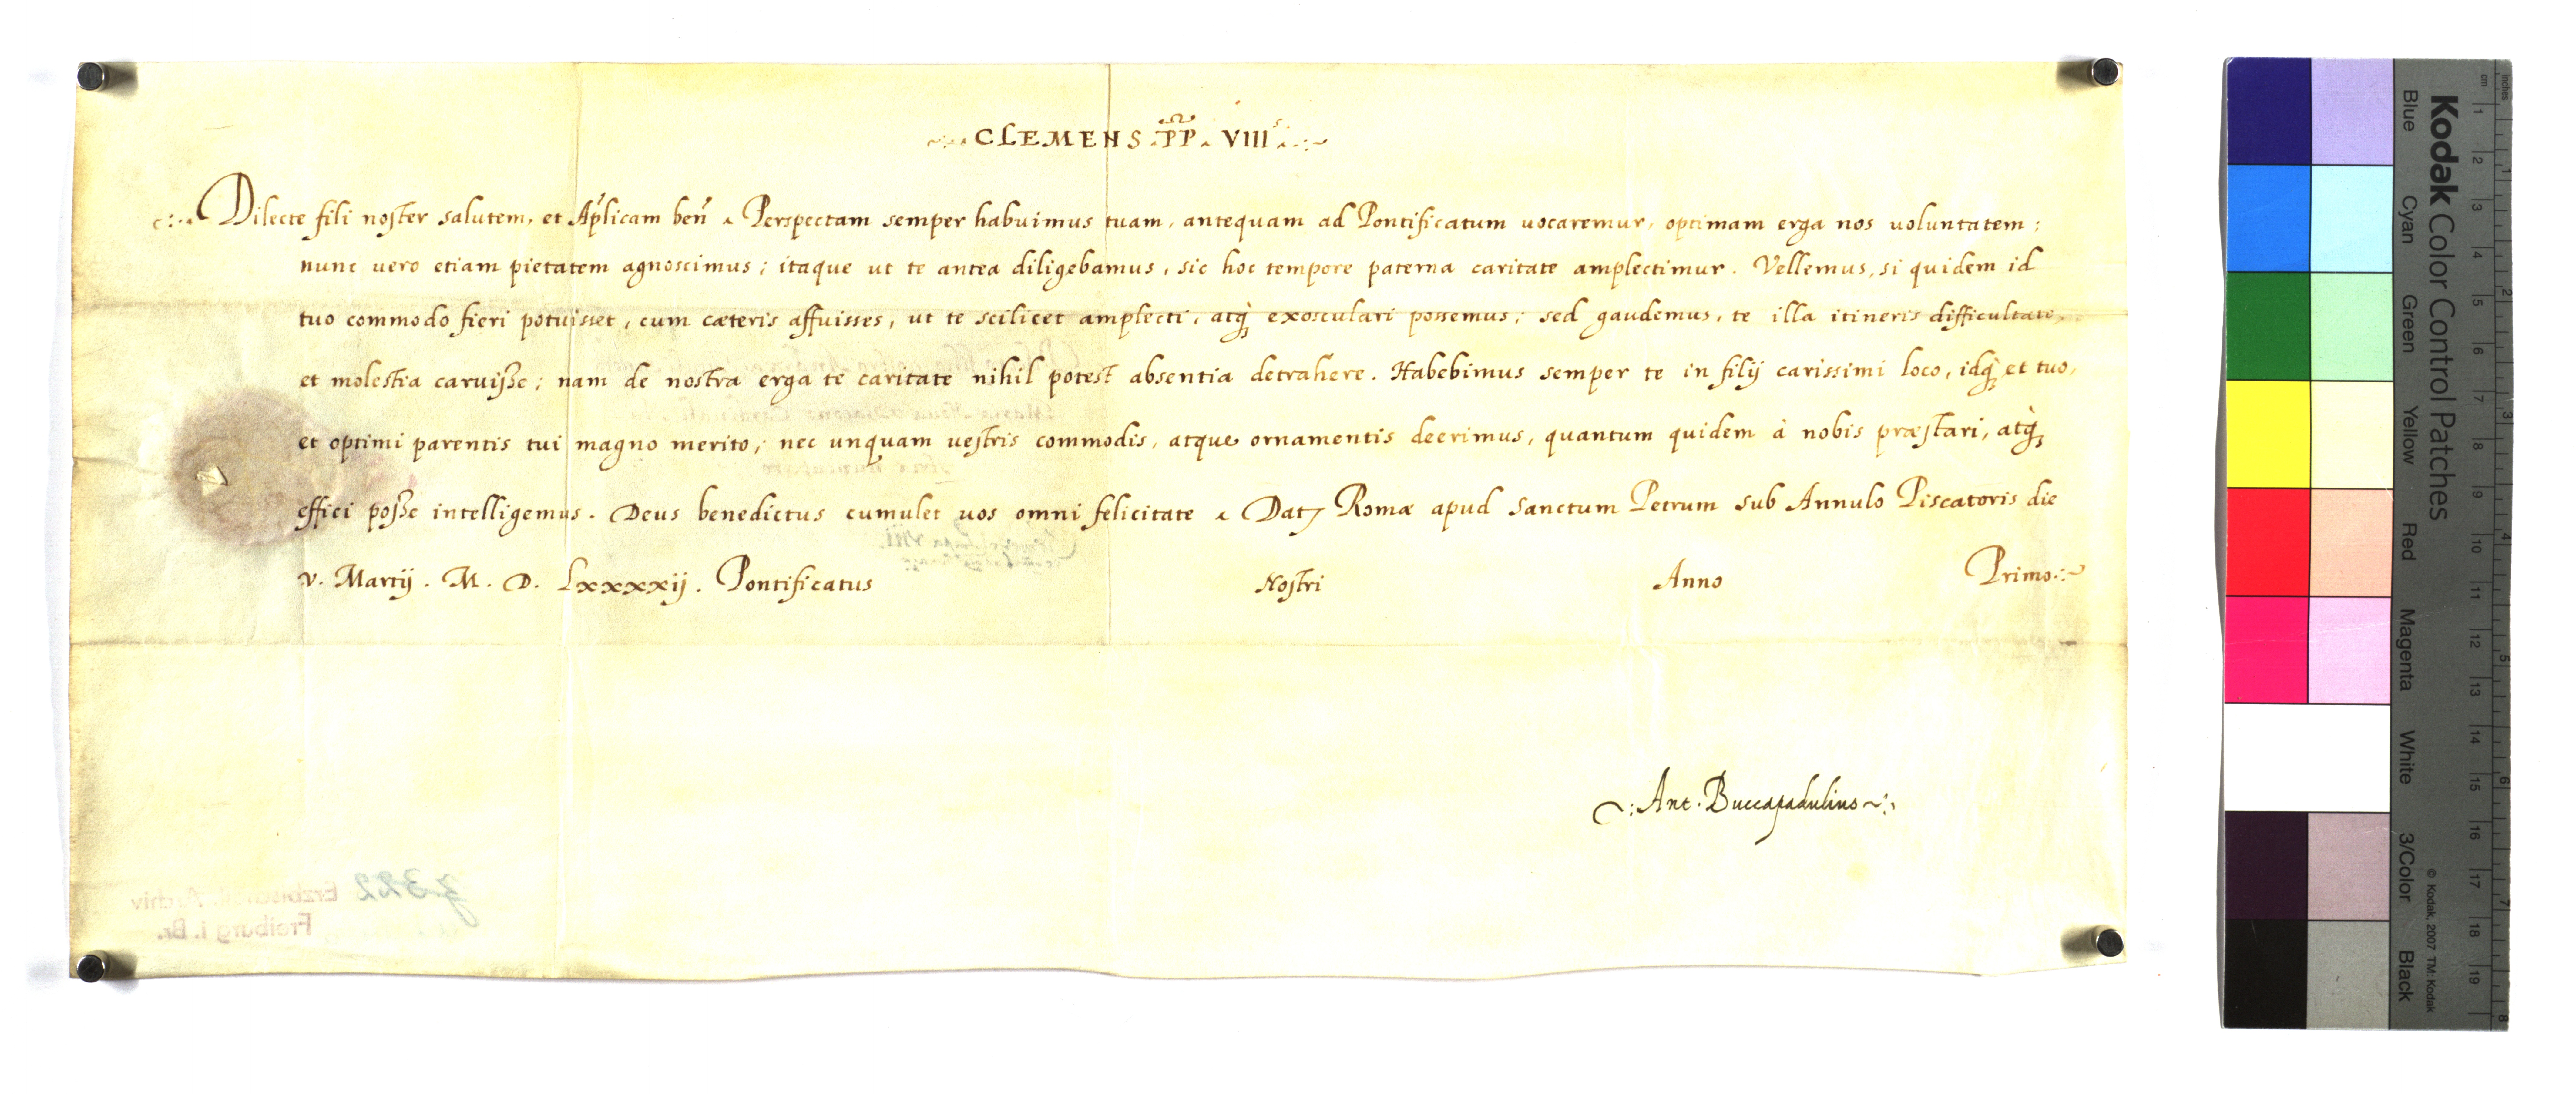 CLEMENS PP. VIII.
Dilecte fili noster salutem, et Ap̃licam beñ. Perspectam semper habuimus tuam, antequam ad Pontificatum vocaremur, optimam erga nos uoluntatem;
nunc vero etiam pietatem agnoscimus; itaque ut te antea diligebamus, sic hoc tempore paterna caritate amplectimur. Vellemus, si quidem id
tuo commodo fieri potuisset, cum cæteris affuisses, ut te scilicet amplecti, atq; exosculari possemus; sed gaudemus, te illa itineris difficultate,
et molestia caruisse; nam de nostra erga te caritate nihil potest absentia detrahere. Habebimus semper te in filij carissimi loco, idq; et tuo,
et optimi parentis tui magno merito; nec unquam vestris commodis, atque ornamentis deerimus, quantum quidem à nobis præstari, atq;
effici posse intelligemus. Deus benedictus cumulet uos omni felicitate. Dat. Romæ apud Sanctum Petrum sub Annulo Piscatoris die
v. Martij. M. D. Lxxxxij. Pontificatus Nostri Anno Primo.
Ant. Buccapadulius
z 322
Erzbischöfl. Archiv
Freiburg i. Br.
Kodak Color Control Patches
Blue Cyan Green Yellow Red Magenta White 3/Color Black
© Kodak, 2007 TM: Kodak
cm 1 2 3 4 5 6 7 8 9 10 11 12 13 14 15 16 17 18 19
inches 1 2 3 4 5 6 7 8